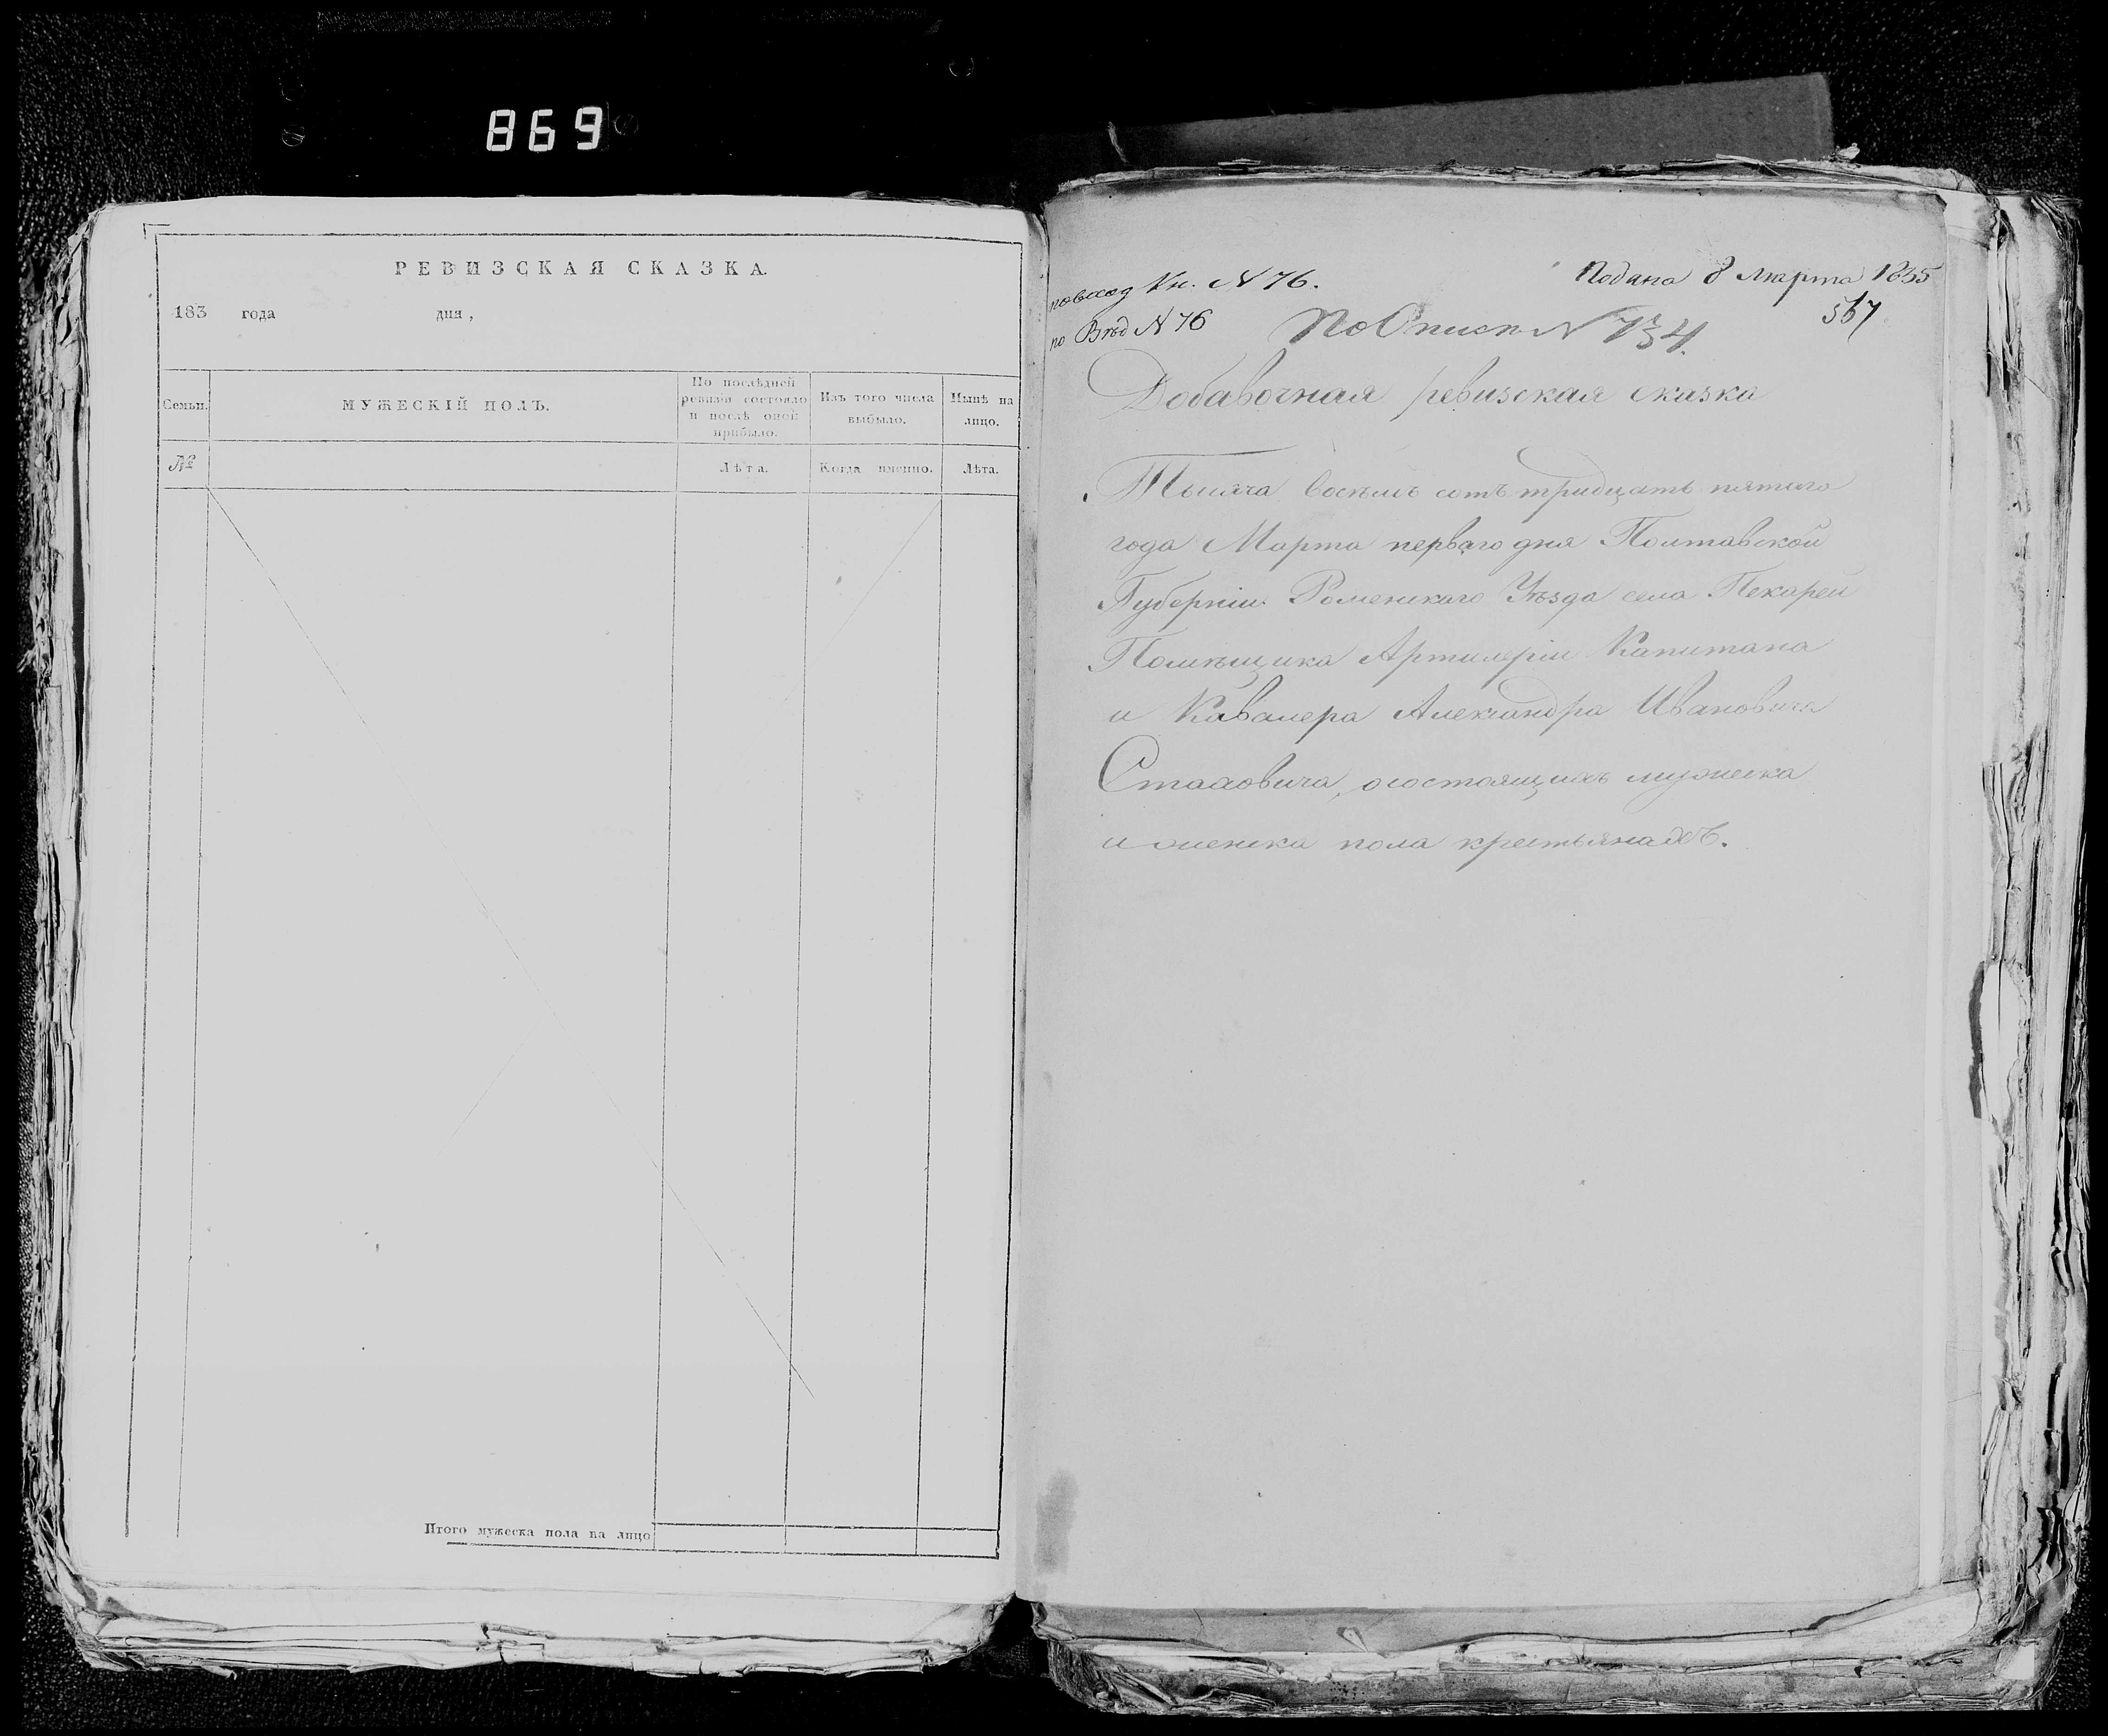 869
РЕВИЗСКАЯ СКАЗКА.
183 года дня,
Семьи.
МУЖЕСКІЙ ПОЛЪ.
По послѣдней
ревизіи состояло
и послѣ оной
прибыло.
Изъ того числа
выбыло.
Нынѣ на
лицо.
№
Лѣта.
Когда именно.
Лѣта.
Итого мужеска пола на лицо
по вход Кн. N 76.
Подана 8 Марта 1835
по Вѣд N 76
По Описи N 734.
Добавочная ревизская сказка
Тысяча восемъ сотъ тридцать пятаго
года Марта перваго дня Полтавской
Губерніи Роменскаго Уѣзда села Пекарей
Помѣщика Артилеріи Капитана
и Кавалера Александра Ивановича
Стаховича, о состоящихъ мужеска
и женска пола крестьянахъ.